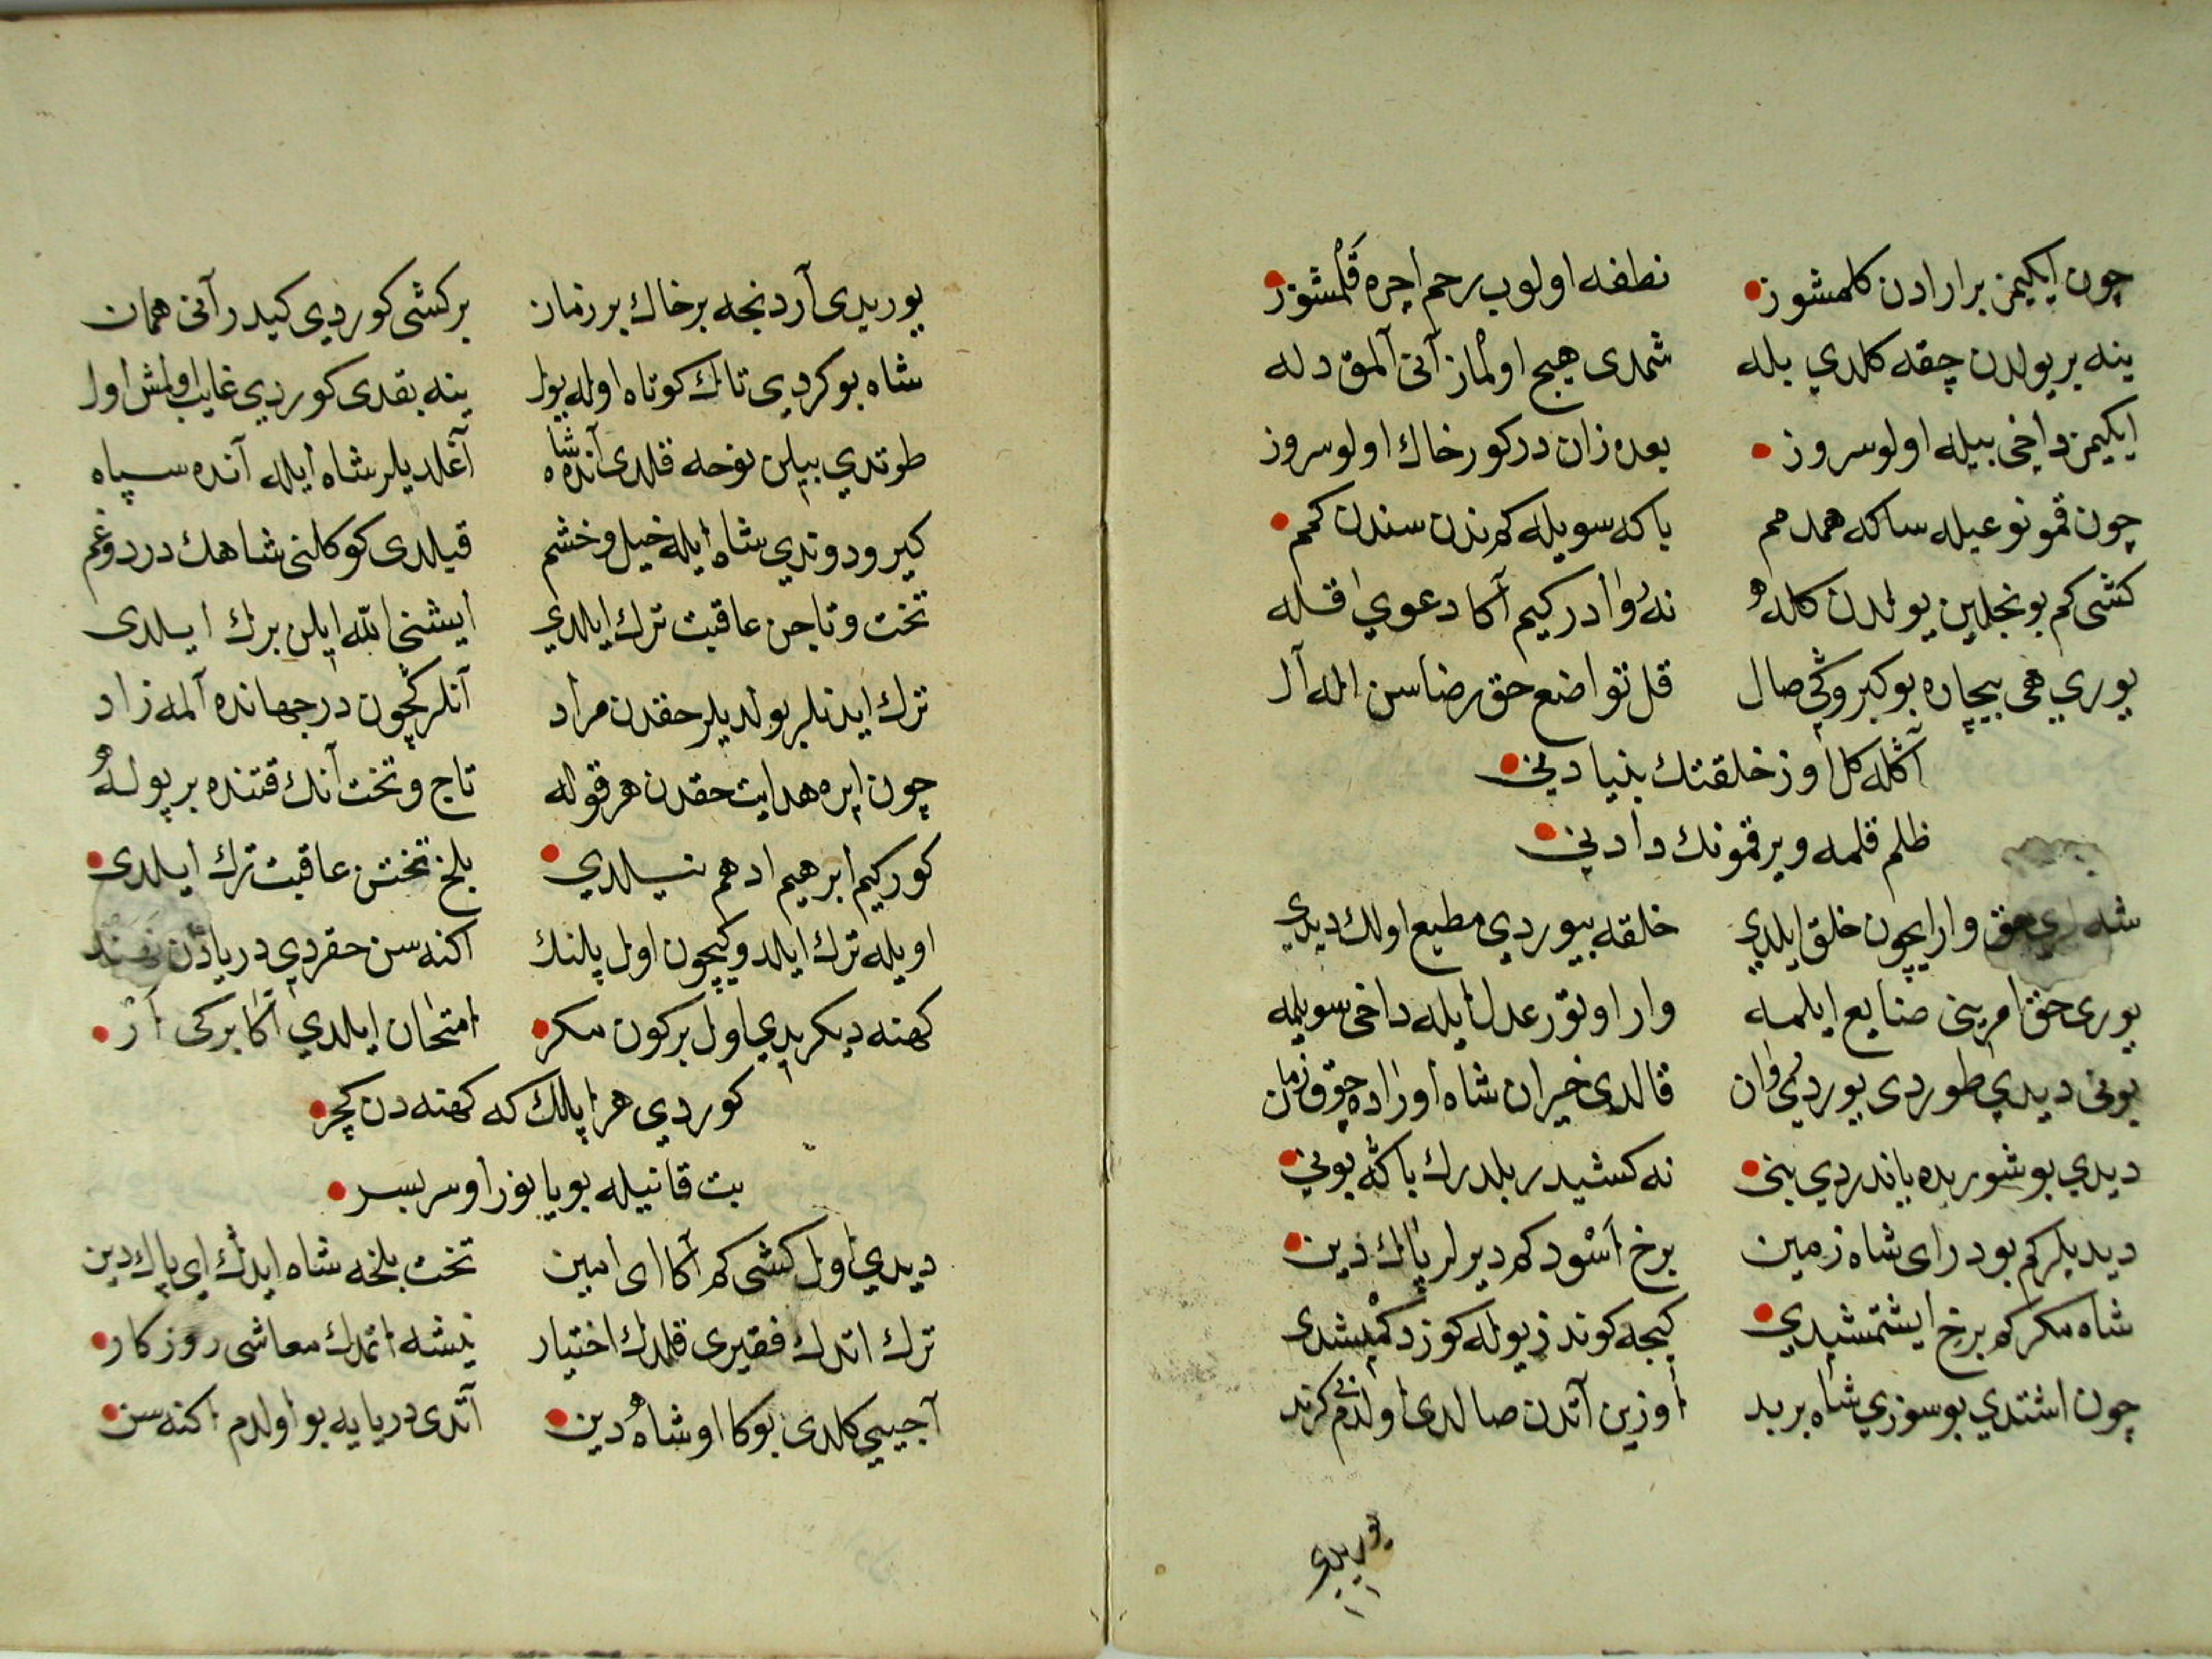 چون ایکیمز برارادن کلمشوز نطفه اولوب رحم اچره قلمشوز
ینه بر یولدن چقه کلدي بله شمدی هیچ اولماز آنی آلمق دله
ایکیمز داخی بیله اولوسروز بعده زان درکور خاك اولوسروز
چون قمو نوعیله ساکه همدمم باکه سویله کم ندن سندن کمم
کشی کم بونجلین یولدن کله نه روادر کیم آکا دعوي قله
یوري هی بیچاره بو کبروکي صال قل تواضع حق رضاسن اله آل
آکله کل اوز خلقتك بنیادینی
ظلم قلمه ویر قمونك دادینی
شه حق وارایچون خلق ایلدي خلقه بیوردي مطیع اولك دیدي
یوری حق امرینی ضایع ایلمه وار اوتور عدل ایله داخی سویلمه
بونی دیدي طوردی یوردي روان قالدی خیران شاه اوراده چوق زمان
دیدي بو شوریده یاندردي بنی نه کشیدر بلدرك باکه بونی
دیدیلر کم بودر ای شاه زمین برخ اسود کم دیرلر پاك دین
شاه مکر کم برخ ایشتمشیدي کیجه کوندز یوله کوز دکمیشدی
چون اشتدي بو سوزي شاه بربد اوزین آتدن صالدی اولدم
یوریدی
یوریدی آردنجه بر خاك بر زمان بر کشی کوردي کیدر آنی همان
شاه بو کردي تاك کوتاه اوله یول ینه بقدی کوردي غایب اولمش اول
طوتدي بیلن نوحه قلدی آنده شاه آغلدیلر شاه ایله آنده سپاه
کیرو دوندي شاه ایله خیل و خشم قیلدی کوکلنی شاهك درد و غم
تخت و تاجن عاقبت ترك ایلدي ایشنی الله ایلن برك ایلدی
ترك ایدنلر بولدیلر حقدن مراد آنلرکچون در جهانده آلمه زاد
چون ایره هدایت حقدن هر قوله تاج و تخت آنك قتنده بر پوله
کورکیم ابرهیم ادهم نیلدي بلخ تختن عاقبت ترك ایلدی
اویله ترك ایلدوکیچون اول پلنك اکنه سن حقردي دریادن نهنك
کهنه دیکریدي اول برکون مکر امتحان ایلدي آکا برکی ار
کوردي هر ایپلك که کهنه دن کچر
بت قانیله بویانور اوسر بسر
دیدي اول کشی کم آکا ای امین تخت بلخه شاه ایدك اي پاك دین
ترك اتدك فقیری قلدك اختیار نیشه اتمدك معاشی روزکار
آجیبی کلدی بوکا او شاه دین آتدی دریایه بو اولدم اکنه سن